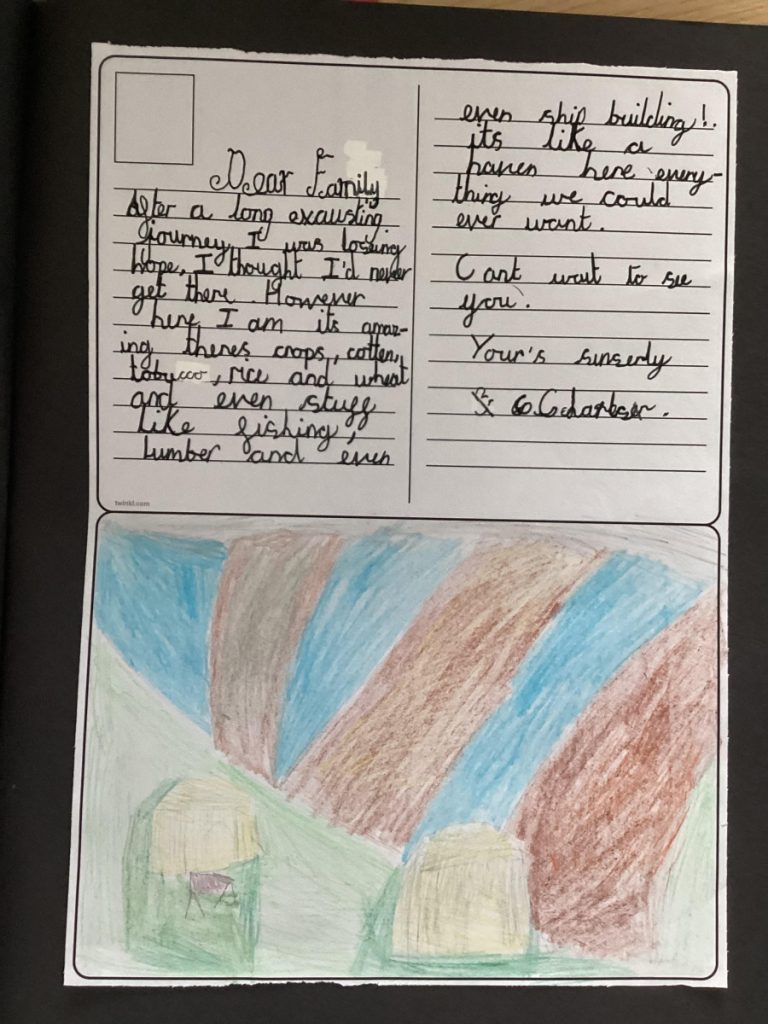 Dear Family
After a long exausting
journey I was loosing
hope, I thought I'd never
get there However
here I am its amaz-
ing theres crops, cotten,
tobyccoo, rice and wheat
and even stuff
like fishing,
lumber and even
twinkl.com
even ship building!.
its like a
haven here every-
thing we could
ever want.
Cant wait to see
you.
Your's sinserly